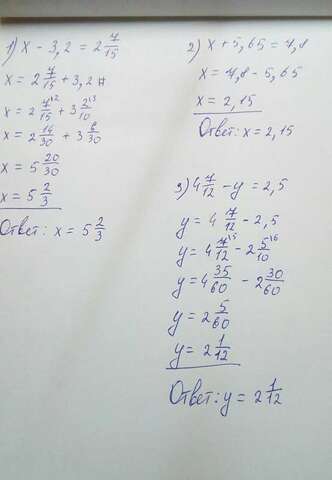 1) x - 3,2 = 2 7/15
x = 2 7/15 + 3,2
x = 2 7/15 ^2 + 3 2/10 ^3
x = 2 14/30 + 3 6/30
x = 5 20/30
x = 5 2/3
Ответ: x = 5 2/3
2) x + 5,65 = 7,8
x = 7,8 - 5,65
x = 2,15
Ответ: x = 2,15
3) 4 7/12 - y = 2,5
y = 4 7/12 - 2,5
y = 4 7/12 ^5 - 2 5/10 ^6
y = 4 35/60 - 2 30/60
y = 2 5/60
y = 2 1/12
Ответ: y = 2 1/12